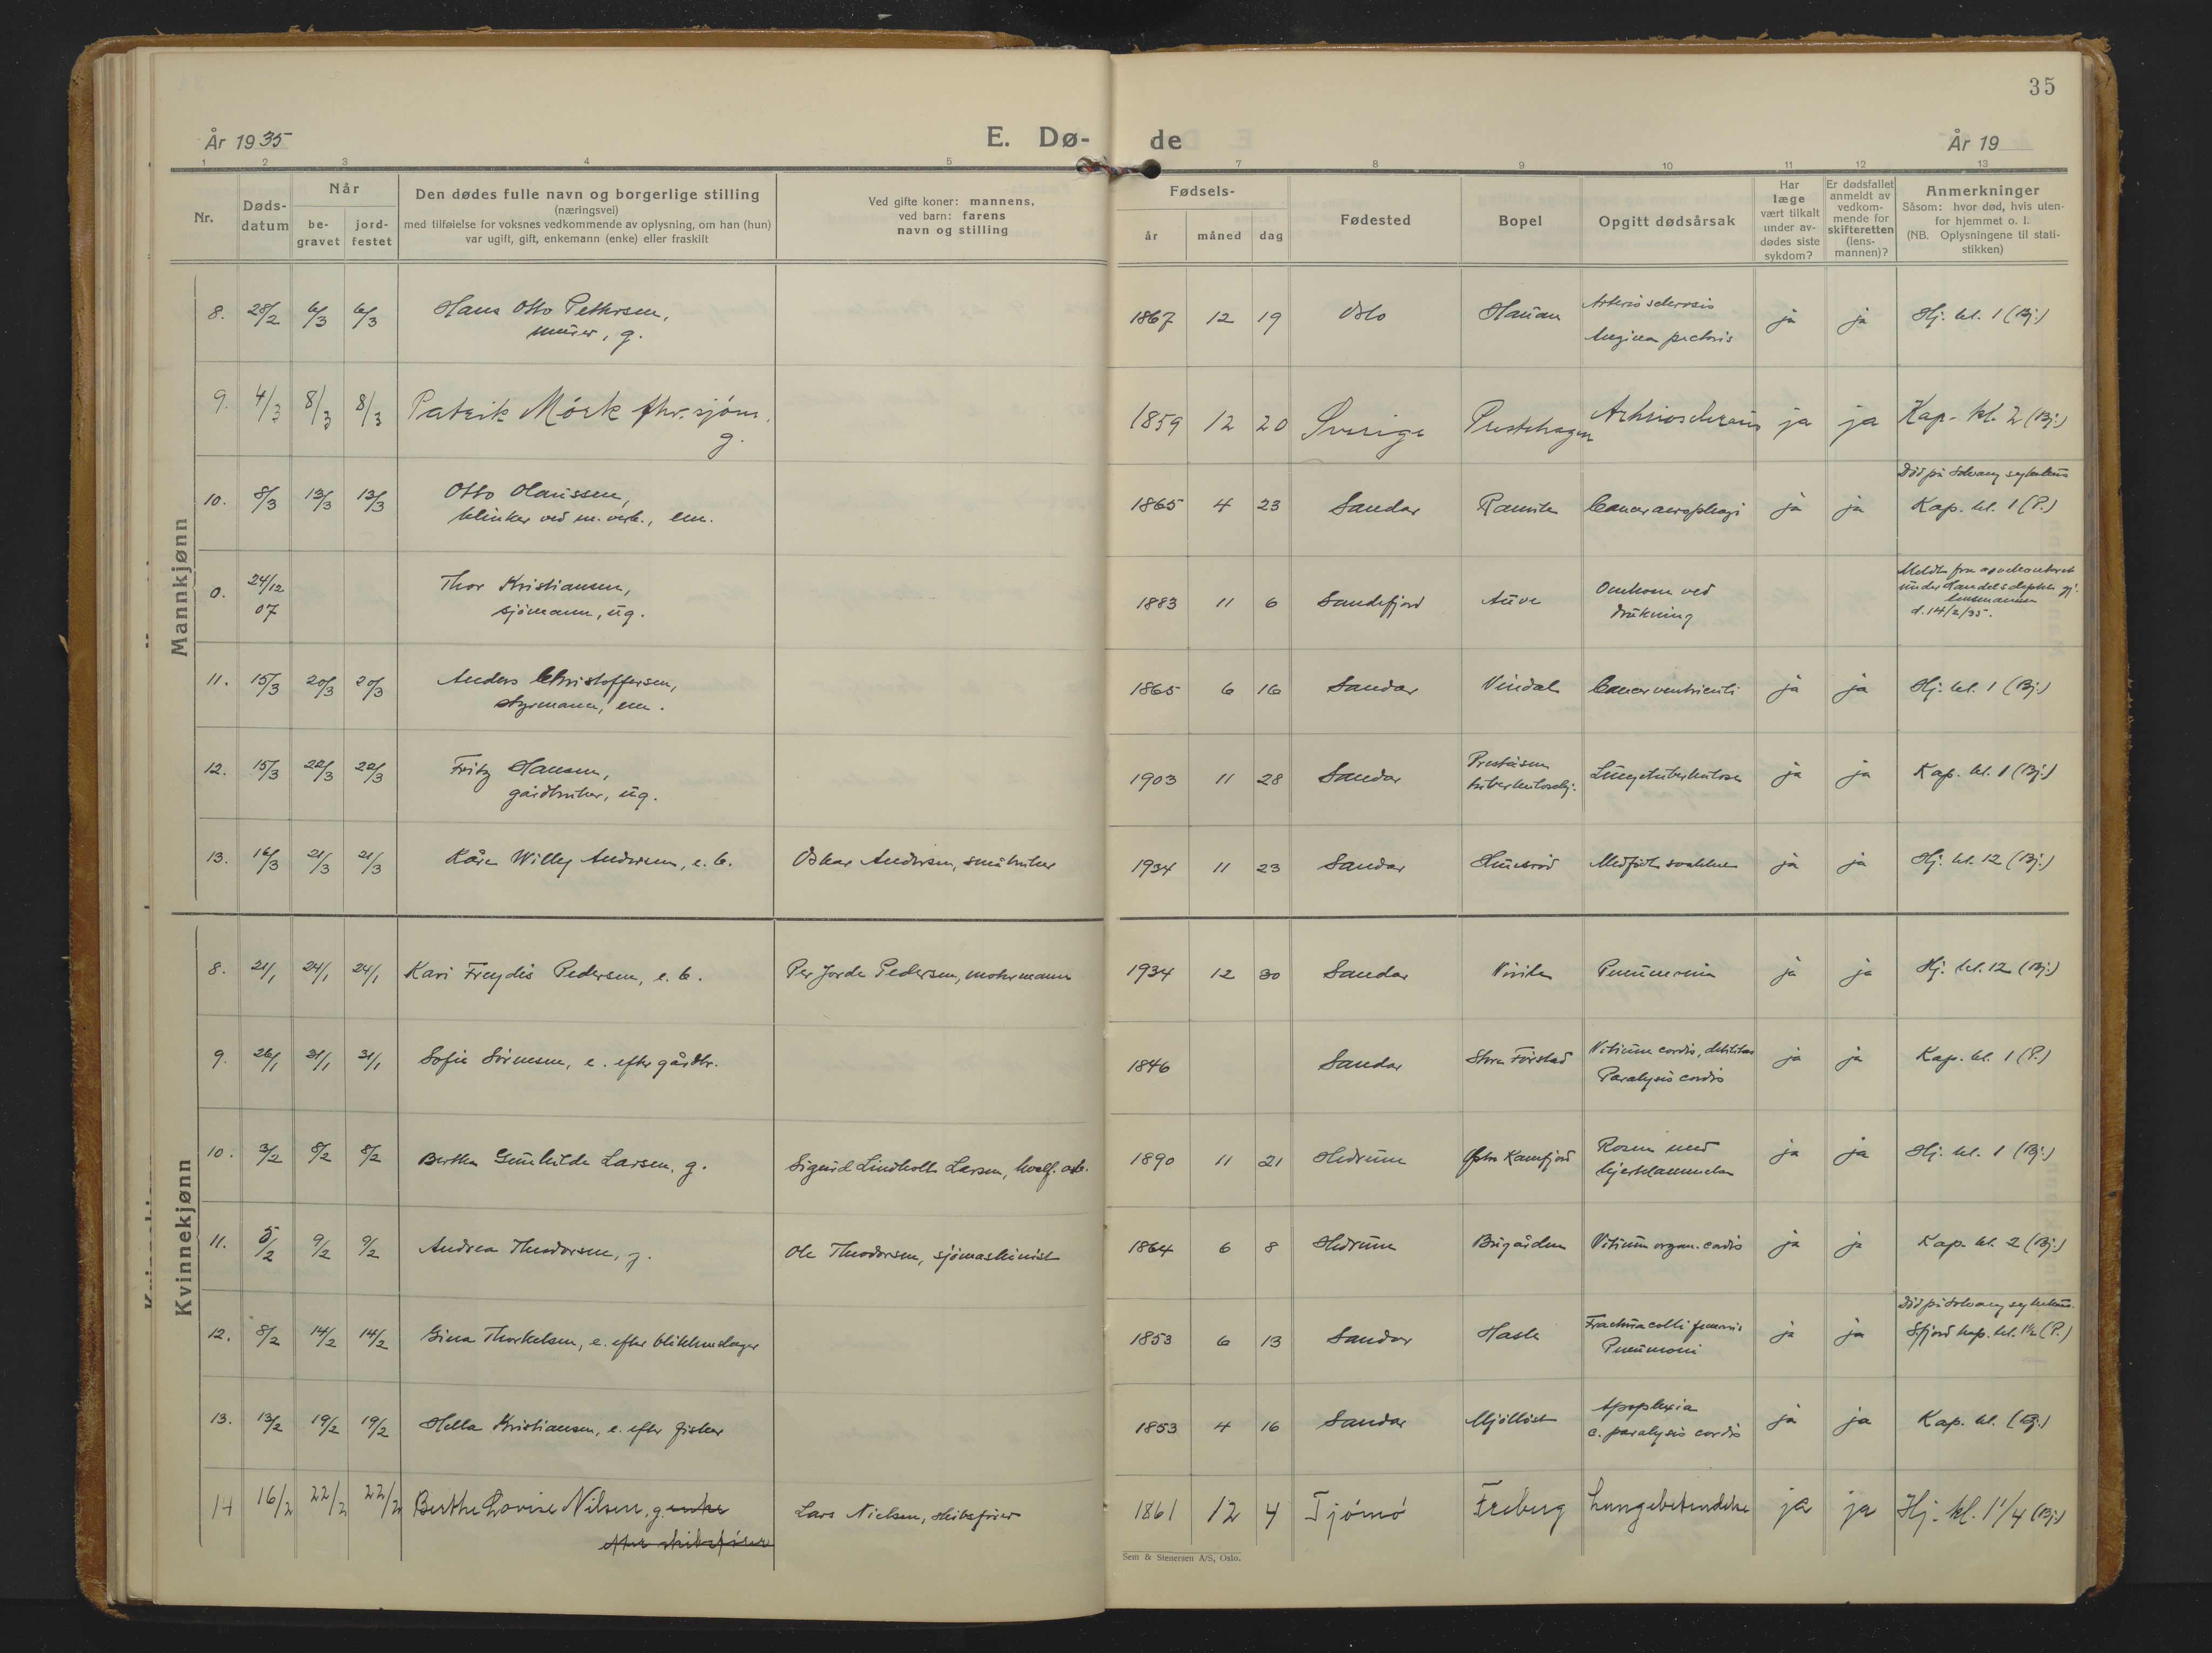 35
År 1935
E. Dø-
de
År 19
1 2 3 4 5 7 8 9 10 11 12 13
Nr.
Døds-
datum
Når
be-
gravet
jord-
festet
Den dødes fulle navn og borgerlige stilling
(næringsvei)
med tilføielse for voksnes vedkommende av oplysning, om han (hun)
var ugift, gift, enkemann (enke) eller fraskilt
Ved gifte koner: mannens,
ved barn: farens
navn og stilling
Fødsels-
år
måned
dag
Fødested
Bopel
Opgitt dødsårsak
Har
læge
vært tilkalt
under av-
dødes siste
sykdom?
Er dødsfallet
anmeldt av
vedkom-
mende for
skifteretten
(lens-
mannen)?
Anmerkninger
Såsom: hvor død, hvis uten-
for hjemmet o. l.
(NB. Oplysningene til stati-
stikken)
Mannkjønn
8. 28/2 6/3 6/3 Hans Otto Pettersen,
murer, g.
1867 12 19 Oslo Haukan Arteriosclerosis
Angina pectoris
ja ja Hj. kl. 1 (Bj.)
9. 4/3 8/3 8/3 Patrik Mörk fhv. sjöm.
g.
1859 12 20 Sverige Prestehagen Arteriosclerosis ja ja Kap. kl. 2 (Bj.)
10. 8/3 13/3 13/3 Otto Olaussen,
klinker ved m. verk., em.
1865 4 23 Sandar Ranvik Cancer øsophagi ja ja
Död på Solvang sykehus
Kap. kl. 1 (P.)
0. 24/12
07
Thor Kristiansen,
sjömann, ug.
1883 11 6 Sandefjord Auve Omkom ved
drukning
d. 14/2/35.
11. 15/3 20/3 20/3 Anders Christoffersen,
styrmann, em.
1865 6 16 Sandar Vindal Cancer ventriculi ja ja Hj. kl. 1 (Bj.)
12. 15/3 22/3 22/3 Fritz Hansen,
gårdbruker, ug.
1903 11 28 Sandar Preståsen
tuberkulosehj.
Lungetuberkulose ja ja Kap. kl. 1 (Bj.)
13. 16/3 21/3 21/3 Kåre Willy Andersen, e. b. Oskar Andersen, småbruker
1934 11 23 Sandar Medfödt svakhet ja ja Hj. kl. 12 (Bj.)
Kvinnekjønn
8. 21/1 24/1 24/1 Kari Freydis Pedersen, e. b. Per Jorde Pedersen, motormann
1934 12 30 Sandar Virik Pneumonia ja ja Hj. kl. 12 (Bj.)
9. 26/1 31/1 31/1 Sofie Sörensen, e. efter gårdbr.
1846 Sandar Store Förstad Vitium cordis, debilitas
Paralysis cordis
ja ja Kap. kl. 1 (P.)
10. 3/2 8/2 8/2 Berthe Gunhilde Larsen, g. Sigurd Lindholt Larsen, hvalf. arb.
1890 11 21 Hedrum Østre Kamfjord Rosen med
hjerklammelse
ja ja Hj. kl. 1 (Bj.)
11. 5/2 9/2 9/2 Andrea Theodorsen, g. Ole Theodorsen, sjömaskinist
1864 6 8 Hedrum Bugården Vitium organ. cordis ja ja Kap. kl. 2 (Bj.)
12. 8/2 14/2 14/2 Gina Thorkelsen, e. efter blikkenslager
1853 6 13 Sandar Hasle Fractura colli femoris
Pneumoni
ja ja
Död på Solvang sykehus.
Sfjord kap. kl. 1½ (P.)
13. 13/2 19/2 19/2 Hella Kristiansen, e. efter fisker
1853 4 16 Sandar Mjölløst Apoplexia
c. paralysis cordis
ja ja Kap. kl. (Bj.)
14 16/2 22/2 22/2 Berthe Lovise Nilsen, g. enke
efter skibsfører
Lars Nielsen, skibsförer
1861 12 4 Tjömö Freberg Lungebetendelse ja ja Hj. kl. 1 1/4 (Bj.)
Sem & Stenersen A/S, Oslo.